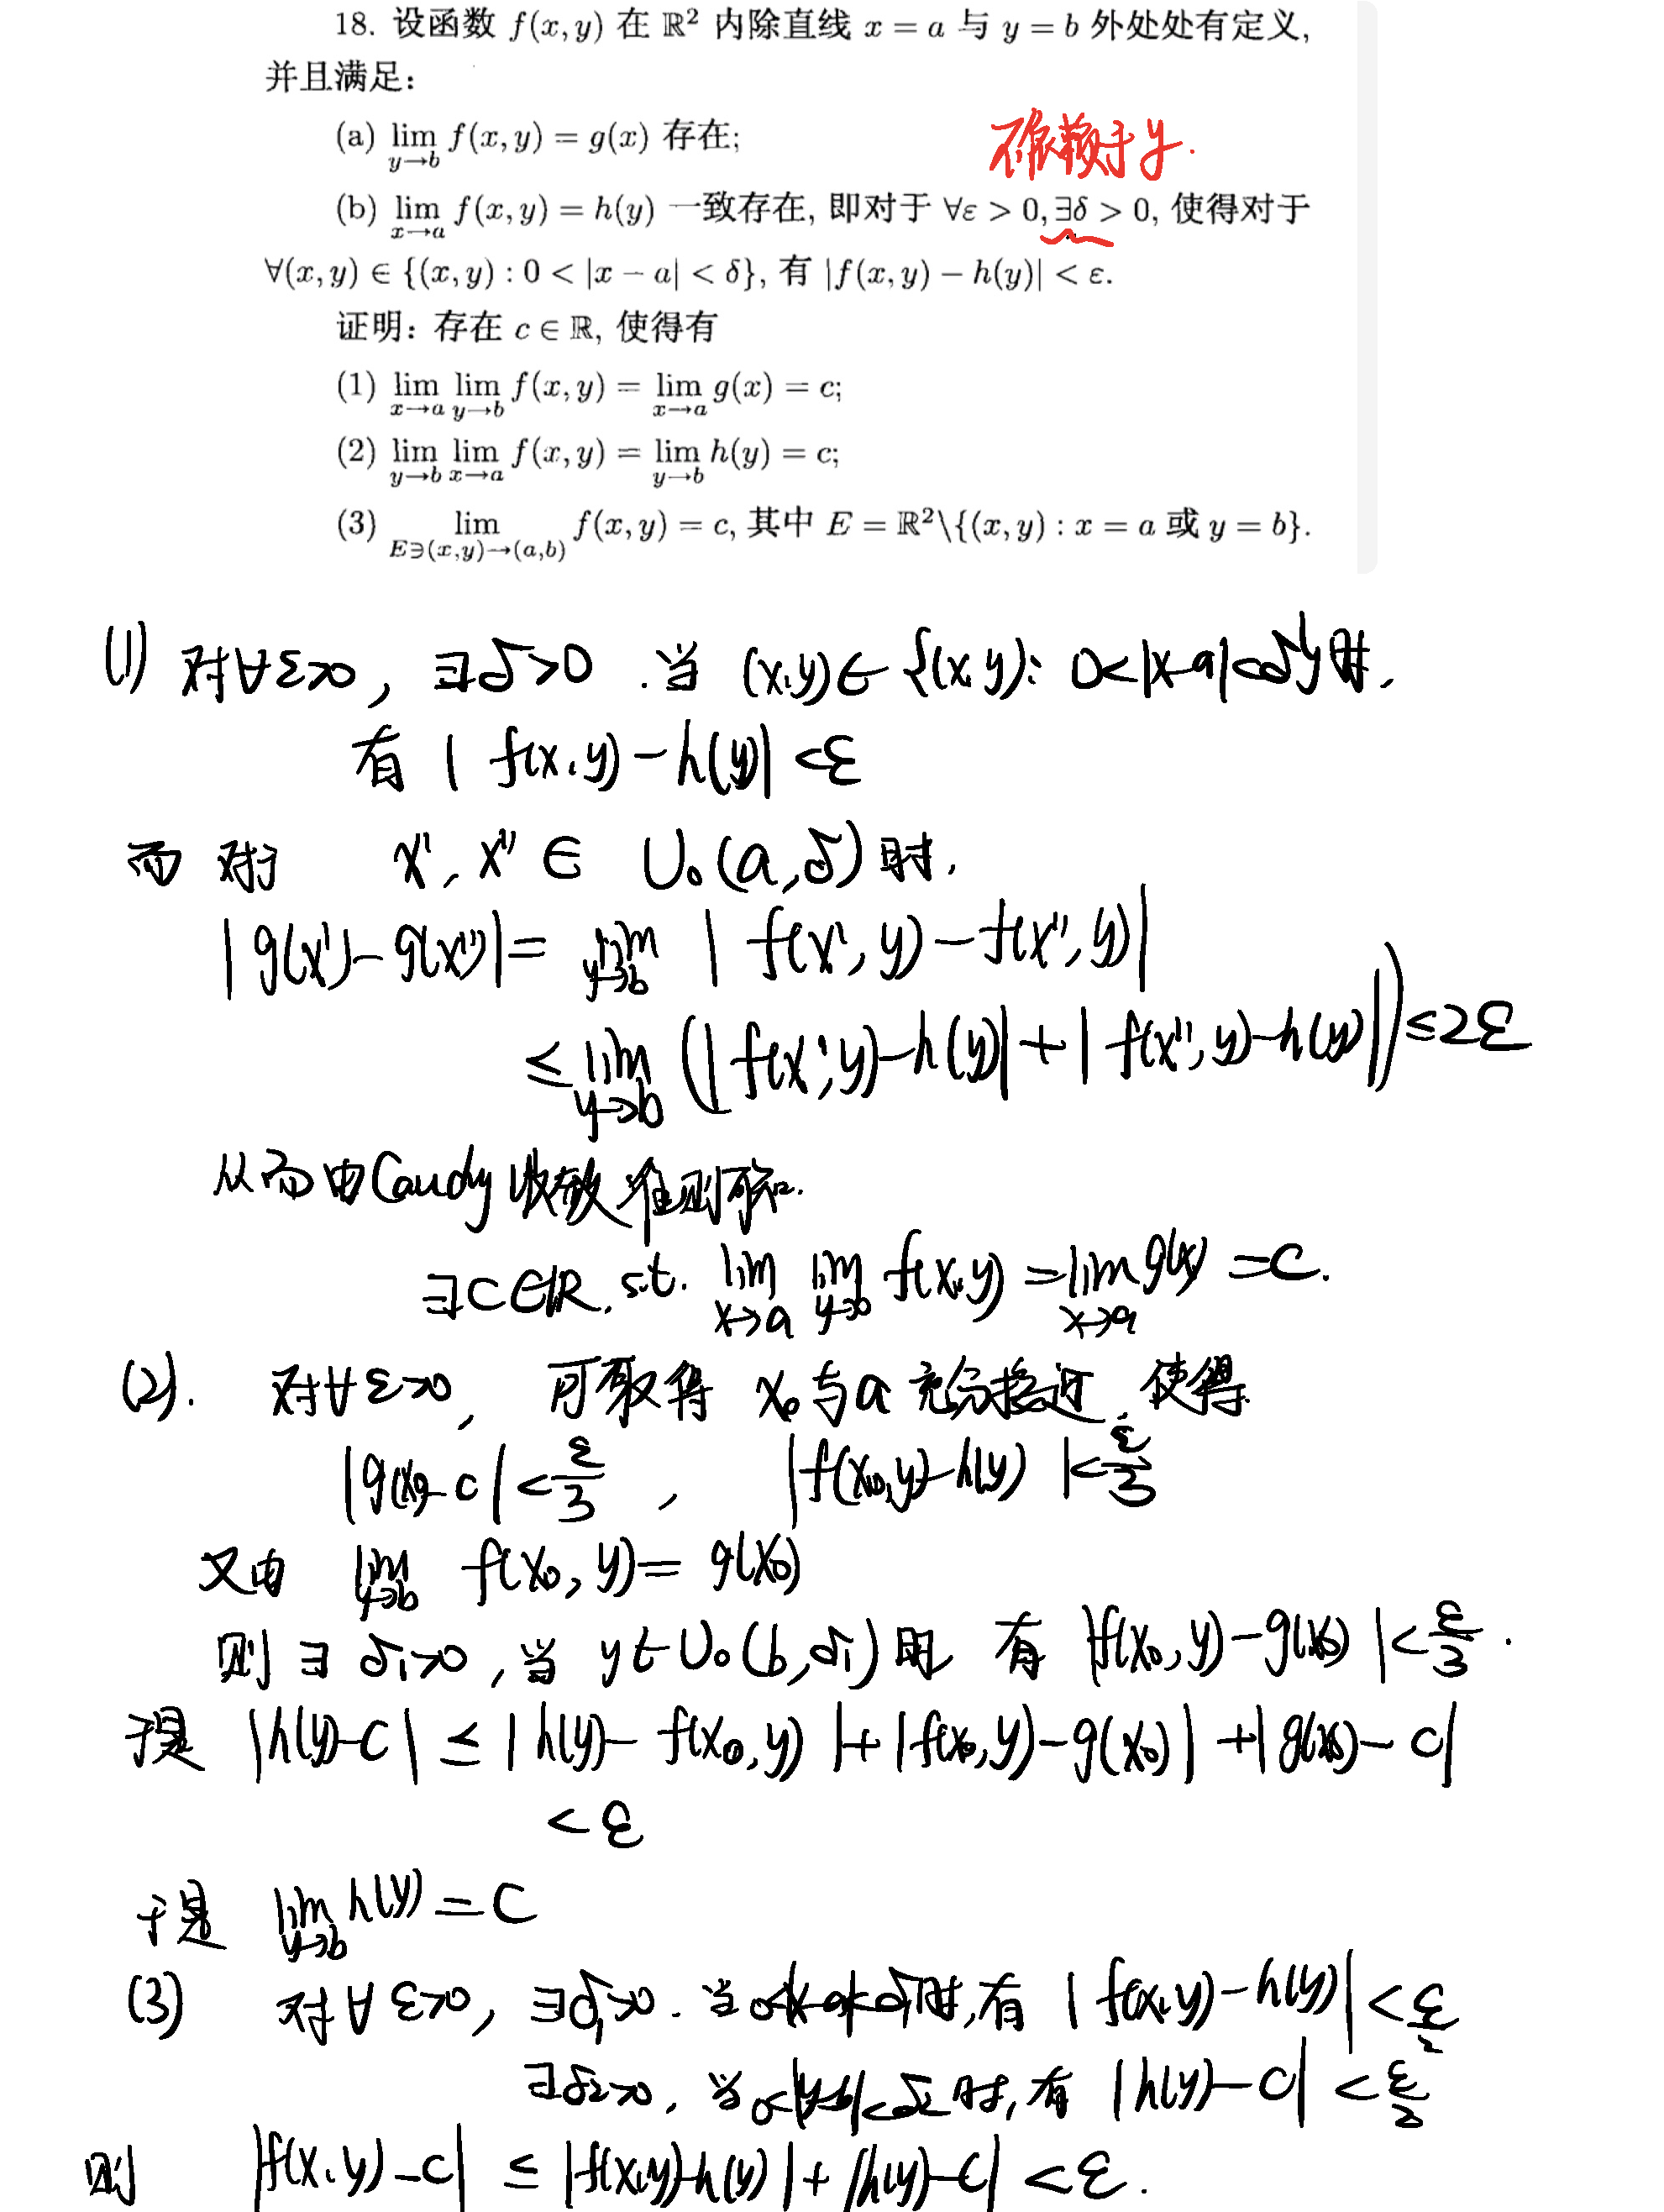 18. 设函数 f(x, y) 在 ℝ² 内除直线 x = a 与 y = b 外处处有定义,
并且满足:
(a) lim_{y→b} f(x, y) = g(x) 存在;
不依赖于 y.
(b) lim_{x→a} f(x, y) = h(y) 一致存在, 即对于 ∀ε > 0, ∃δ > 0, 使得对于
∀(x, y) ∈ {(x, y) : 0 < |x − a| < δ}, 有 |f(x, y) − h(y)| < ε.
证明: 存在 c ∈ ℝ, 使得有
(1) lim_{x→a} lim_{y→b} f(x, y) = lim_{x→a} g(x) = c;
(2) lim_{y→b} lim_{x→a} f(x, y) = lim_{y→b} h(y) = c;
(3) lim_{E∋(x,y)→(a,b)} f(x, y) = c, 其中 E = ℝ²\{(x, y) : x = a 或 y = b}.
(1) 对∀ε>0, ∃δ>0. 当 (x,y)∈{(x,y): 0<|x-a|<δ}时,
有 |f(x,y)-h(y)|<ε
而对于 x', x'' ∈ U₀(a,δ)时,
|g(x')-g(x'')| = lim_{y→b} |f(x',y)-f(x'',y)|
≤ lim_{y→b} (|f(x',y)-h(y)|+|f(x'',y)-h(y)|) ≤2ε
从而由Cauchy收敛准则可知.
∃C∈ℝ, s.t. lim_{x→a} lim_{y→b} f(x,y) = lim_{x→a} g(x) = C.
(2). 对∀ε>0, 可取得 x₀与a充分接近, 使得
|g(x₀)-c|<ε/3, |f(x₀,y)-h(y)|<ε/3
又由 lim_{y→b} f(x₀,y) = g(x₀)
则∃δ₁>0, 当 y∈U₀(b,δ₁)时, 有 |f(x₀,y)-g(x₀)|<ε/3.
于是 |h(y)-C| ≤ |h(y)-f(x₀,y)|+|f(x₀,y)-g(x₀)|+|g(x₀)-c|
<ε
于是 lim_{y→b} h(y) = C
(3) 对∀ε>0, ∃δ₁>0. 当0<|x-a|<δ₁时,有 |f(x,y)-h(y)|<ε/2
∃δ₂>0, 当0<|y-b|<δ₂时,有 |h(y)-C|<ε/2
则 |f(x,y)-C| ≤ |f(x,y)-h(y)|+|h(y)-C|<ε.